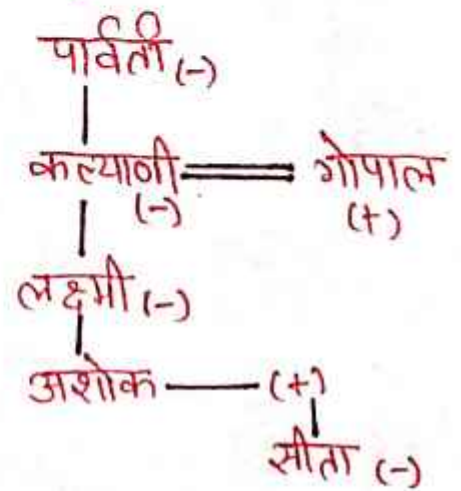 पार्वती (-)
कल्याणी (-) गोपाल (+)
लक्ष्मी (-)
अशोक (+)
सीता (-)